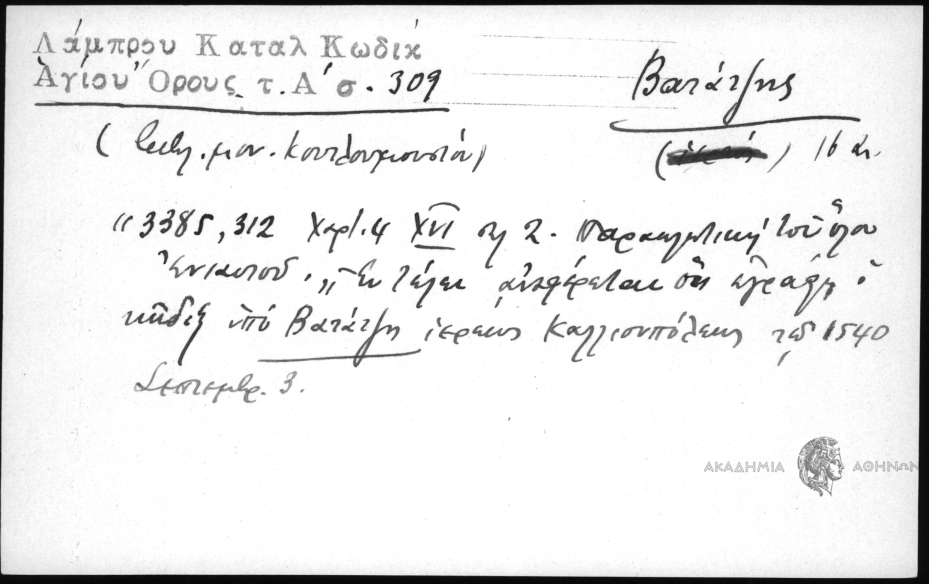 Λάμπρου Καταλ Κωδικ
Ἁγίου Ὄρους τ. Α' σ. 309
Βατάτζης
(βιβλ. μον. Κουτλουμουσίου)
( ) 16 αι.
„ 3385, 312 Χαρτ. 4 XVI σελ 2. Παρακλητικὴ τοῦ ὅλου
Ἐνιαυτοῦ. „ Ἐν τέλει ἀναφέρεται ὅτι ἐγράφη ὁ
κῶδιξ ὑπὸ Βατάτζη ἱερέως Καλλιουπόλεως τῷ 1540
Σεπτεμβρ. 3.
ΑΚΑΔΗΜΙΑ ΑΘΗΝΩΝ